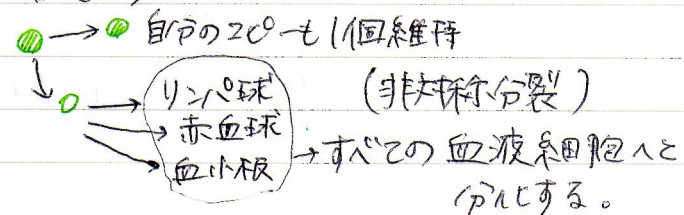 自分のコピーも1個維持
リンパ球
(非対称分裂)
赤血球
血小板
すべての血液細胞へと
分化する。